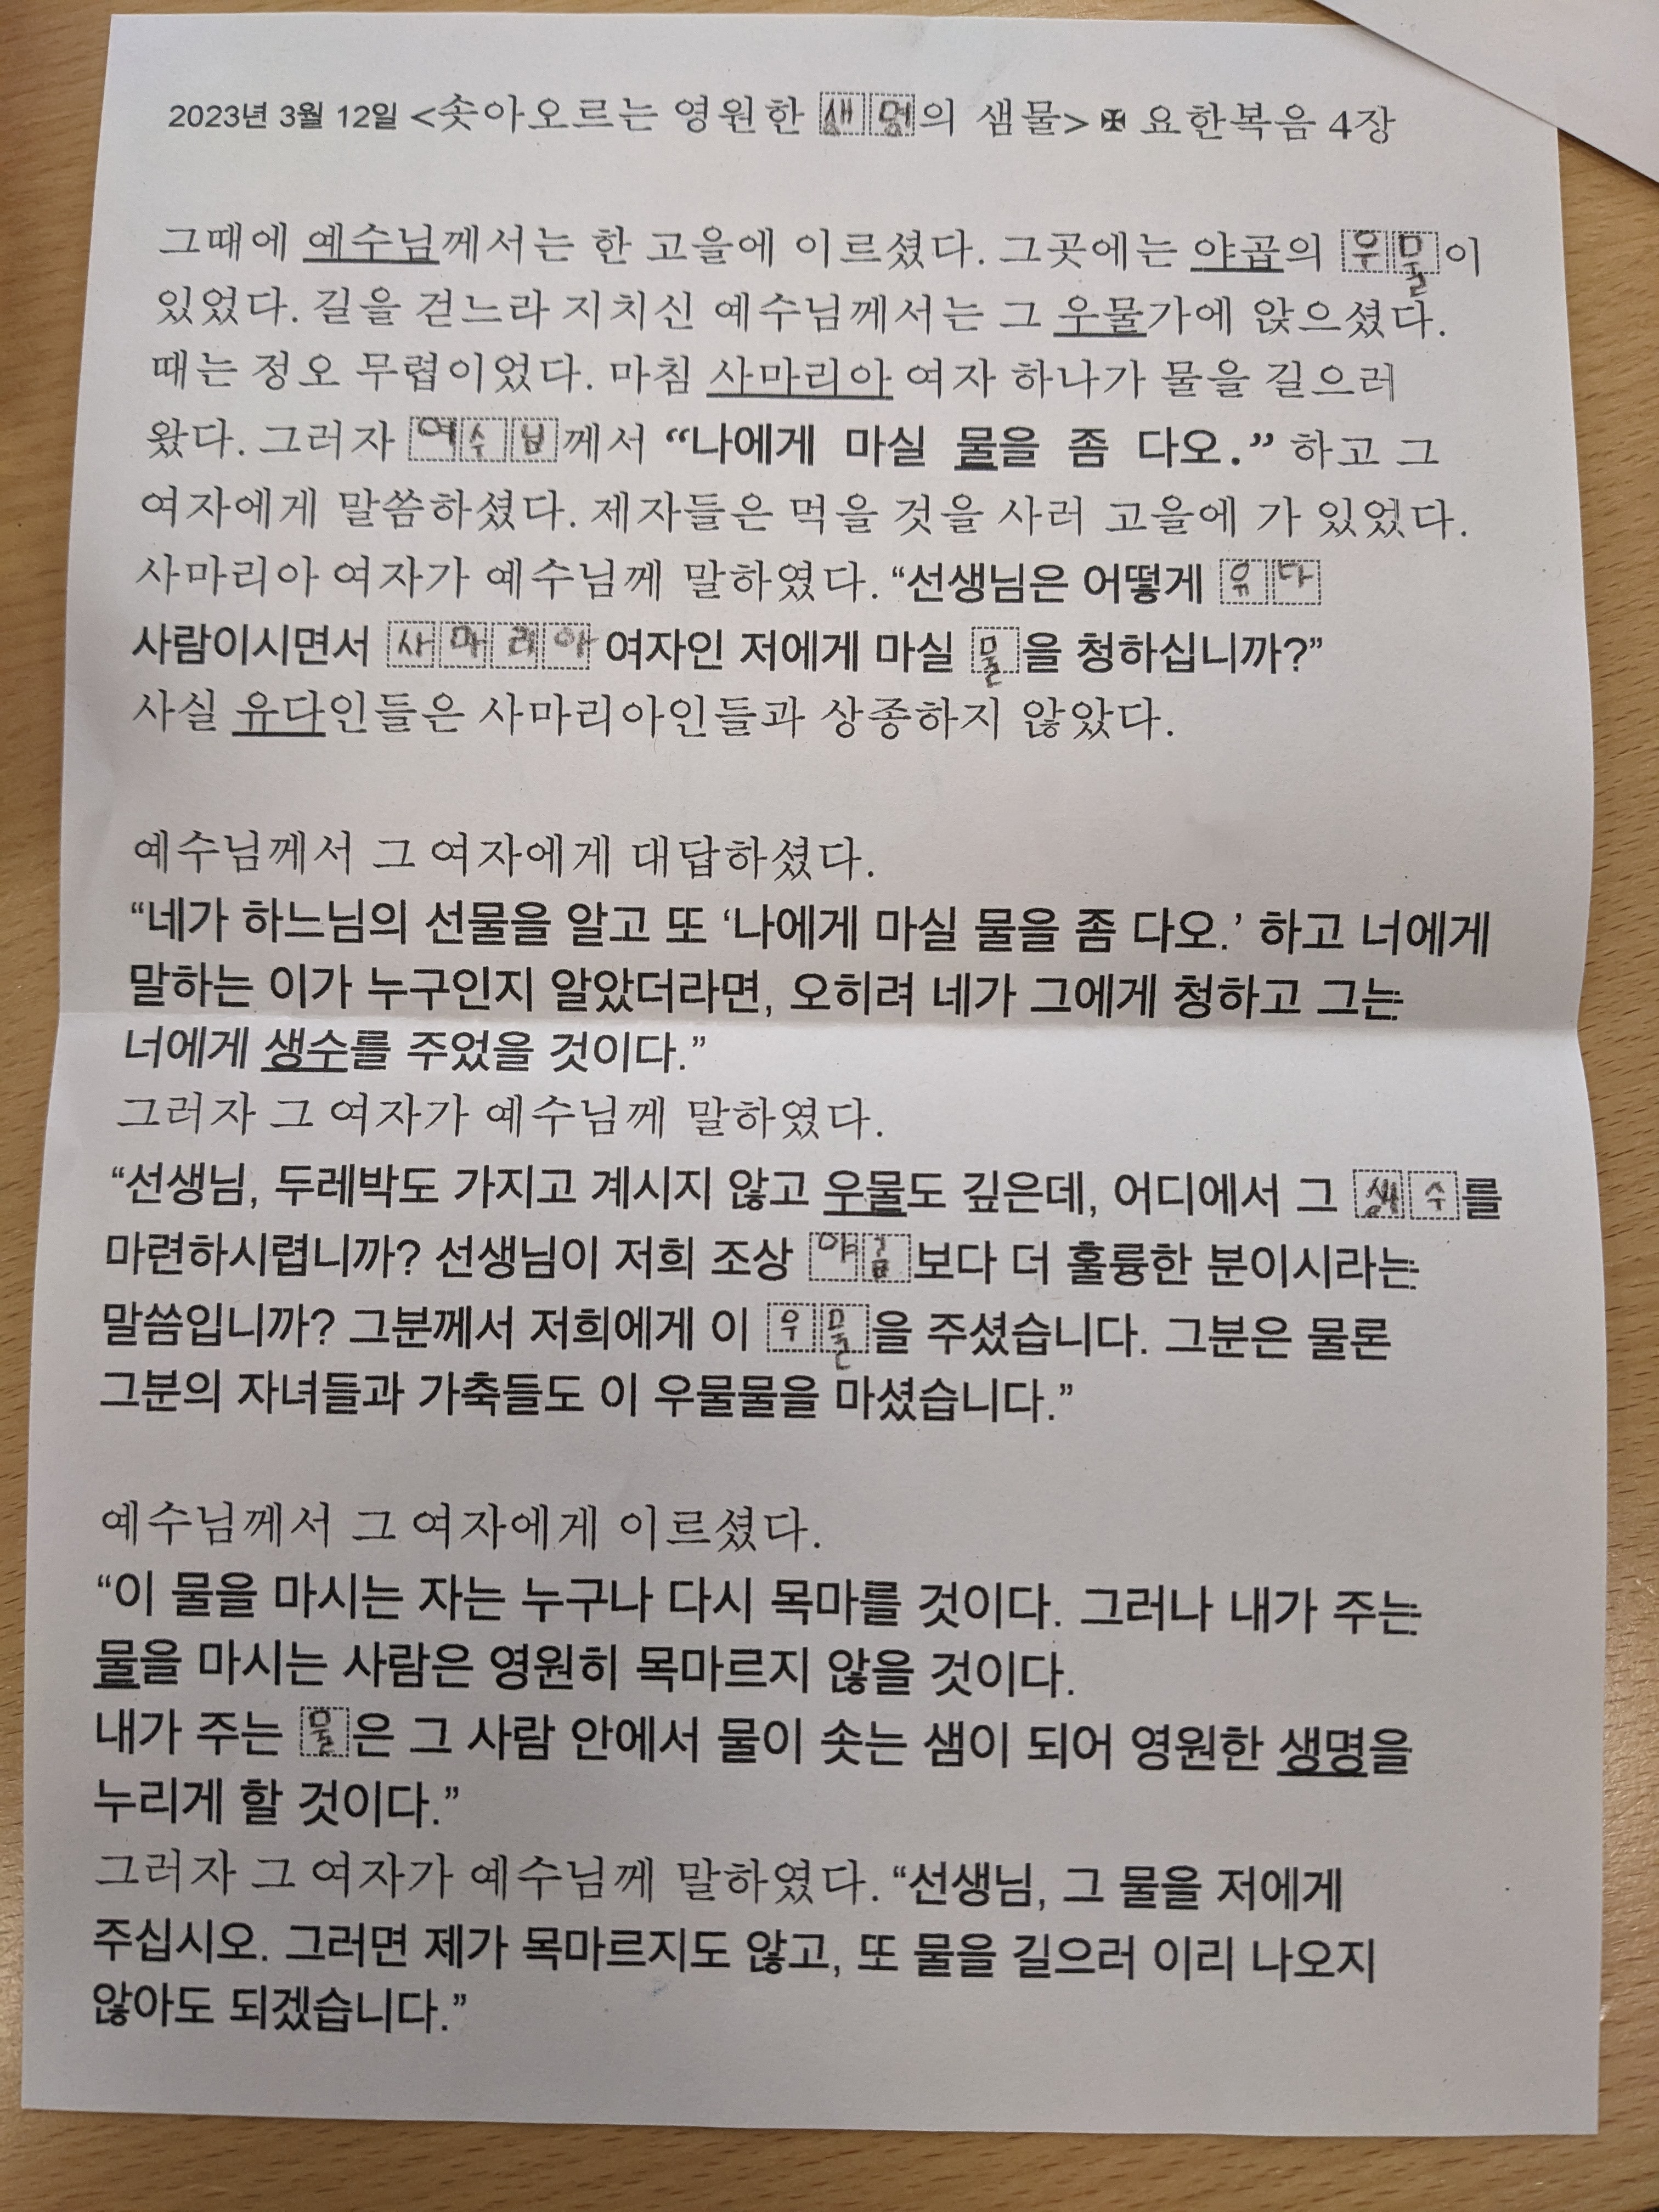 2023년 3월 12일 <솟아오르는 영원한 생명의 샘물> ✠ 요한복음 4장
그때에 예수님께서는 한 고을에 이르셨다. 그곳에는 야곱의 우물이
있었다. 길을 걷느라 지치신 예수님께서는 그 우물가에 앉으셨다.
때는 정오 무렵이었다. 마침 사마리아 여자 하나가 물을 길으러
왔다. 그러자 예수님께서 “나에게 마실 물을 좀 다오.” 하고 그
여자에게 말씀하셨다. 제자들은 먹을 것을 사러 고을에 가 있었다.
사마리아 여자가 예수님께 말하였다. “선생님은 어떻게 유다
사람이시면서 사마리아 여자인 저에게 마실 물을 청하십니까?”
사실 유다인들은 사마리아인들과 상종하지 않았다.
예수님께서 그 여자에게 대답하셨다.
“네가 하느님의 선물을 알고 또 ‘나에게 마실 물을 좀 다오.’ 하고 너에게
말하는 이가 누구인지 알았더라면, 오히려 네가 그에게 청하고 그는
너에게 생수를 주었을 것이다.”
그러자 그 여자가 예수님께 말하였다.
“선생님, 두레박도 가지고 계시지 않고 우물도 깊은데, 어디에서 그 생수를
마련하시렵니까? 선생님이 저희 조상 야곱보다 더 훌륭한 분이시라는
말씀입니까? 그분께서 저희에게 이 우물을 주셨습니다. 그분은 물론
그분의 자녀들과 가축들도 이 우물물을 마셨습니다.”
예수님께서 그 여자에게 이르셨다.
“이 물을 마시는 자는 누구나 다시 목마를 것이다. 그러나 내가 주는
물을 마시는 사람은 영원히 목마르지 않을 것이다.
내가 주는 물은 그 사람 안에서 물이 솟는 샘이 되어 영원한 생명을
누리게 할 것이다.”
그러자 그 여자가 예수님께 말하였다. “선생님, 그 물을 저에게
주십시오. 그러면 제가 목마르지도 않고, 또 물을 길으러 이리 나오지
않아도 되겠습니다.”